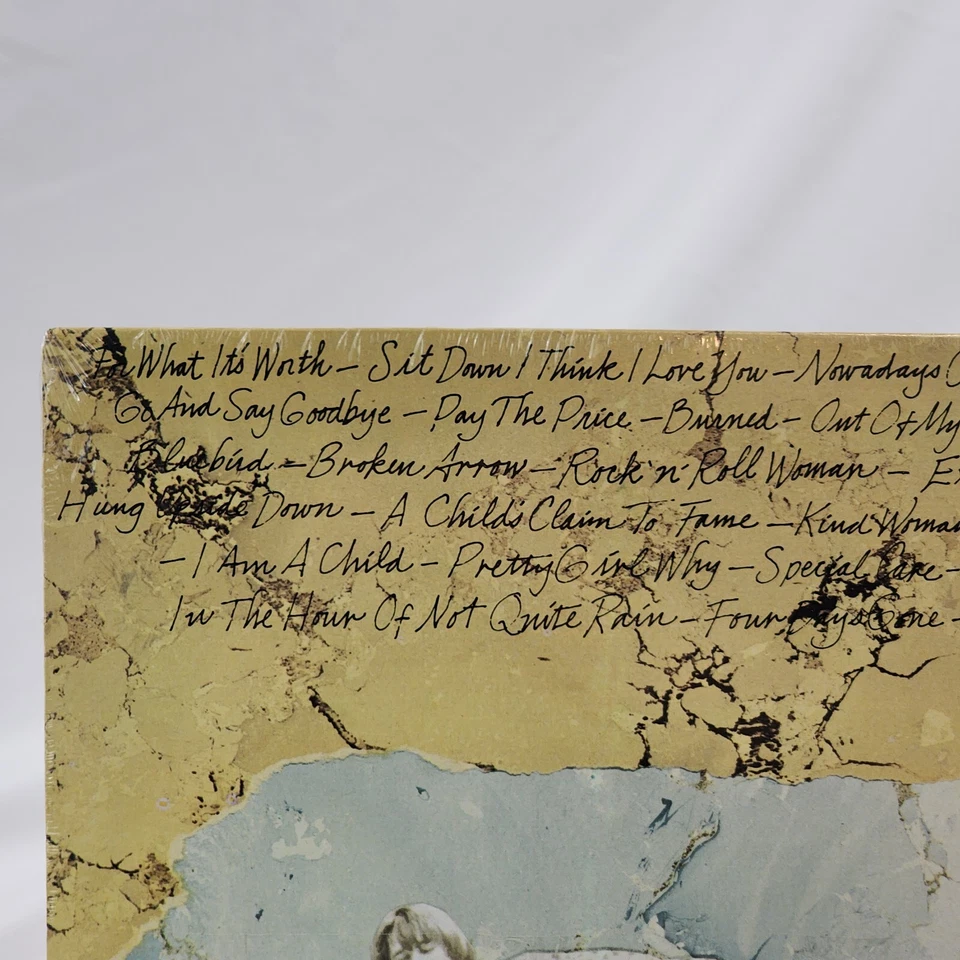 For What It's Worth – Sit Down I Think I Love You – Nowadays
Go And Say Goodbye – Pay The Price – Burned – Out Of My
Bluebird – Broken Arrow – Rock 'n' Roll Woman –
Hung Upside Down – A Child's Claim To Fame – Kind Woman
– I Am A Child – Pretty Girl Why – Special Care –
In The Hour Of Not Quite Rain – Four Days Gone –